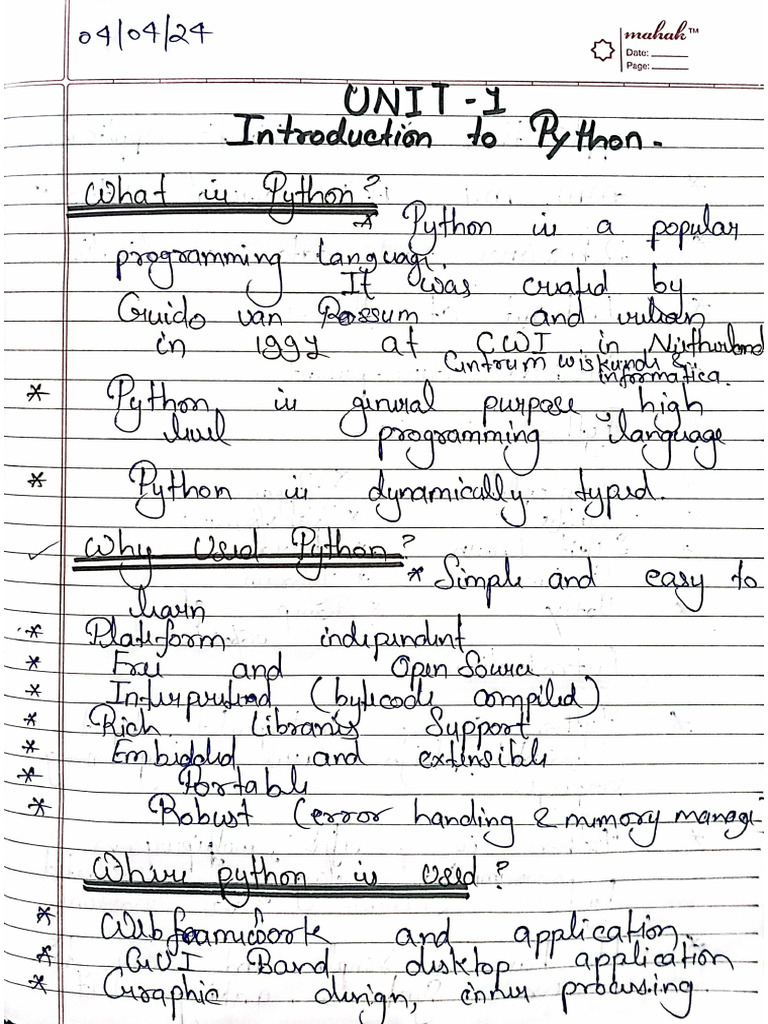 04/04/24
mahak™
Date:
Page:
UNIT-1
Introduction to Python.
What is Python?
* Python is a popular
programming language.
It was created by
Guido van Rossum and release
in 1991 at CWI in Netherland
Centrum wiskunde &
informatica.
* Python is general purpose, high
level programming language
* Python is dynamically typed.
Why Used Python?
* Simple and easy to
learn
* Plateform independent
* Free and Open Source
* Interpreted (bytecode compiled)
* Rich Libraries Support
* Embedded and extensible
* Portable
* Robust (error handing & memory manage
Where python is used?
* Web framework and application
* GUI Based desktop application
* Graphic design, processing.